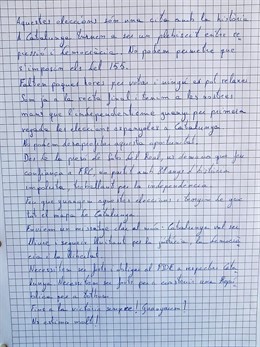 Aquestes eleccions són una cita amb la història
A Catalunya tornem a ser un plebiscit entre re-
pressió i democràcia. No podem permetre que
s'imposin els del 155.
Falten poques hores per votar i ningú es pot relaxar
Som ja a la recta final i tenim a les nostres
mans que l'independentisme guanyi per primera
vegada les eleccions espanyoles a Catalunya
No podem desaprofitar aquesta oportunitat.
Des de la presó de Soto del Real, us demano que feu
confiança a ERC, un partit amb 88 anys d'història
impol·luta treballant per la independència
Feu que guanyem aquestes eleccions i tenyim de groc
tot el mapa de Catalunya
Enviem un missatge clar al món: Catalunya vol ser
lliure i seguirà lluitant per la justícia, la democrà-
cia i la llibertat
Necessitem ser forts i obligar al PSOE a respectar Cata-
lunya Necessitem ser forts per a construir una Repú-
blica per a tothom
Fins a la victòria sempre! Guanyarem!
Us estimo molt!